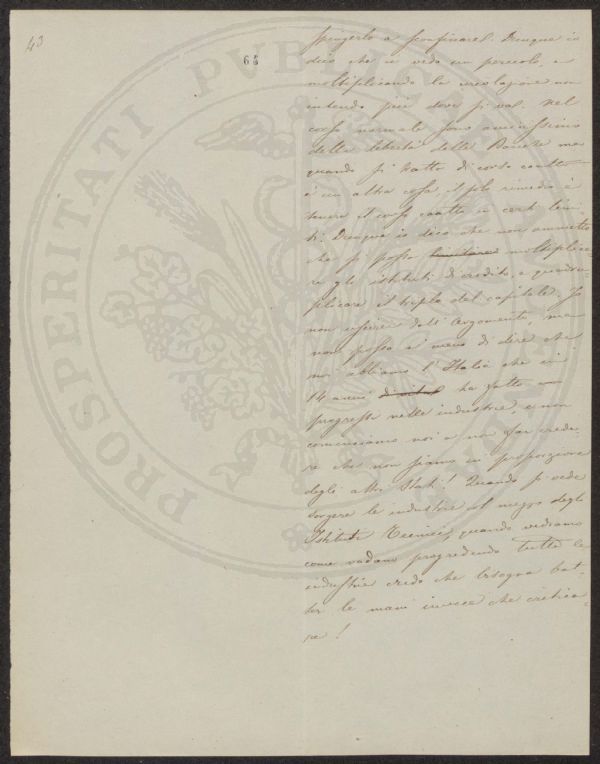 43
64
PROSPERITATI PVBLICAE
spingerlo a sconfinare! Dunque io
dico che ci vedo un pericolo, e
moltiplicando la circolazione non
intendo più dove si va. Nel
corso normale sono amicissimo
della libertà delle Banche ma
quando si tratta di corso coatto
è un altra cosa, il solo rimedio è
tenere il corso coatto in certi limi-
ti. Dunque io dico che non ammetto
che si possa moltiplica-
re gli istituti di credito, e
plicare il triplo del capitale. Io
non uscire dall'argomento, ma
non posso a meno di dire che
noi abbiamo l'Italia che in
14 anni ha fatto
progressi nelle industrie, e non
cominciamo noi a non far crede-
re che non siamo in proporzione
degli altri Stati! Quando si vede
sorgere le industrie al mezzo degli
Istituti Tecnici, quando vediamo
come vadano progredendo tutte le
industrie credo che bisogna bat-
ter le mani invece che critica-
re!